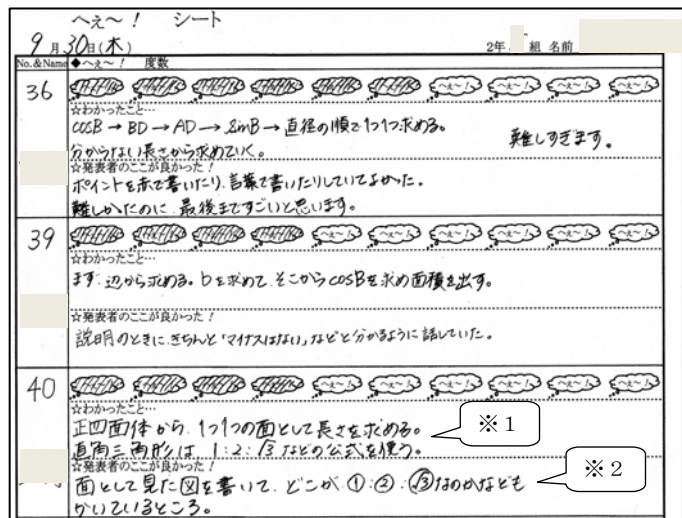 へえ～！ シート
9月30日(木)
2年 組 名前
No.&Name ◆へえ～！ 度数
36 へえ～！ へえ～！ へえ～！ へえ～！
☆わかったこと…
cosB → BD → AD → sinB → 直径の順で1つ1つ求める。
難しすぎます。
分からない長さから求めていく。
☆発表者のここが良かった！
ポイントを赤で書いたり、言葉で書いたりしていてよかった。
難しかったのに、最後まですごいと思います。
39 へえ～！ へえ～！ へえ～！ へえ～！ へえ～！ へえ～！
☆わかったこと…
まず、辺から求める。bを求めて、そこからcosBを求め面積を出す。
☆発表者のここが良かった！
説明のときに、きちんと「マイナスはない」などと分かるように話していた。
40 へえ～！ へえ～！ へえ～！ へえ～！ へえ～！ へえ～！
☆わかったこと…
正四面体から、1つ1つの面として長さを求める。
※1
直角三角形は、1:2:√3などの公式を使う。
☆発表者のここが良かった！
※2
面として見た図を書いて、どこが①:②:√3なのかなども
かいているところ。